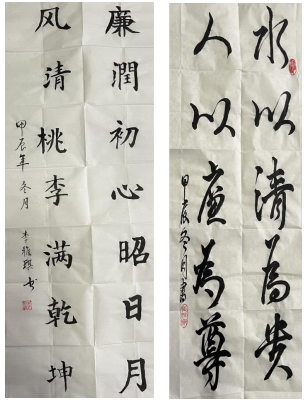 廉潤初心昭日月
风清桃李满乾坤
甲辰年冬月 李雅琪书
水以清為贵
人以廉為尊
甲辰冬月書